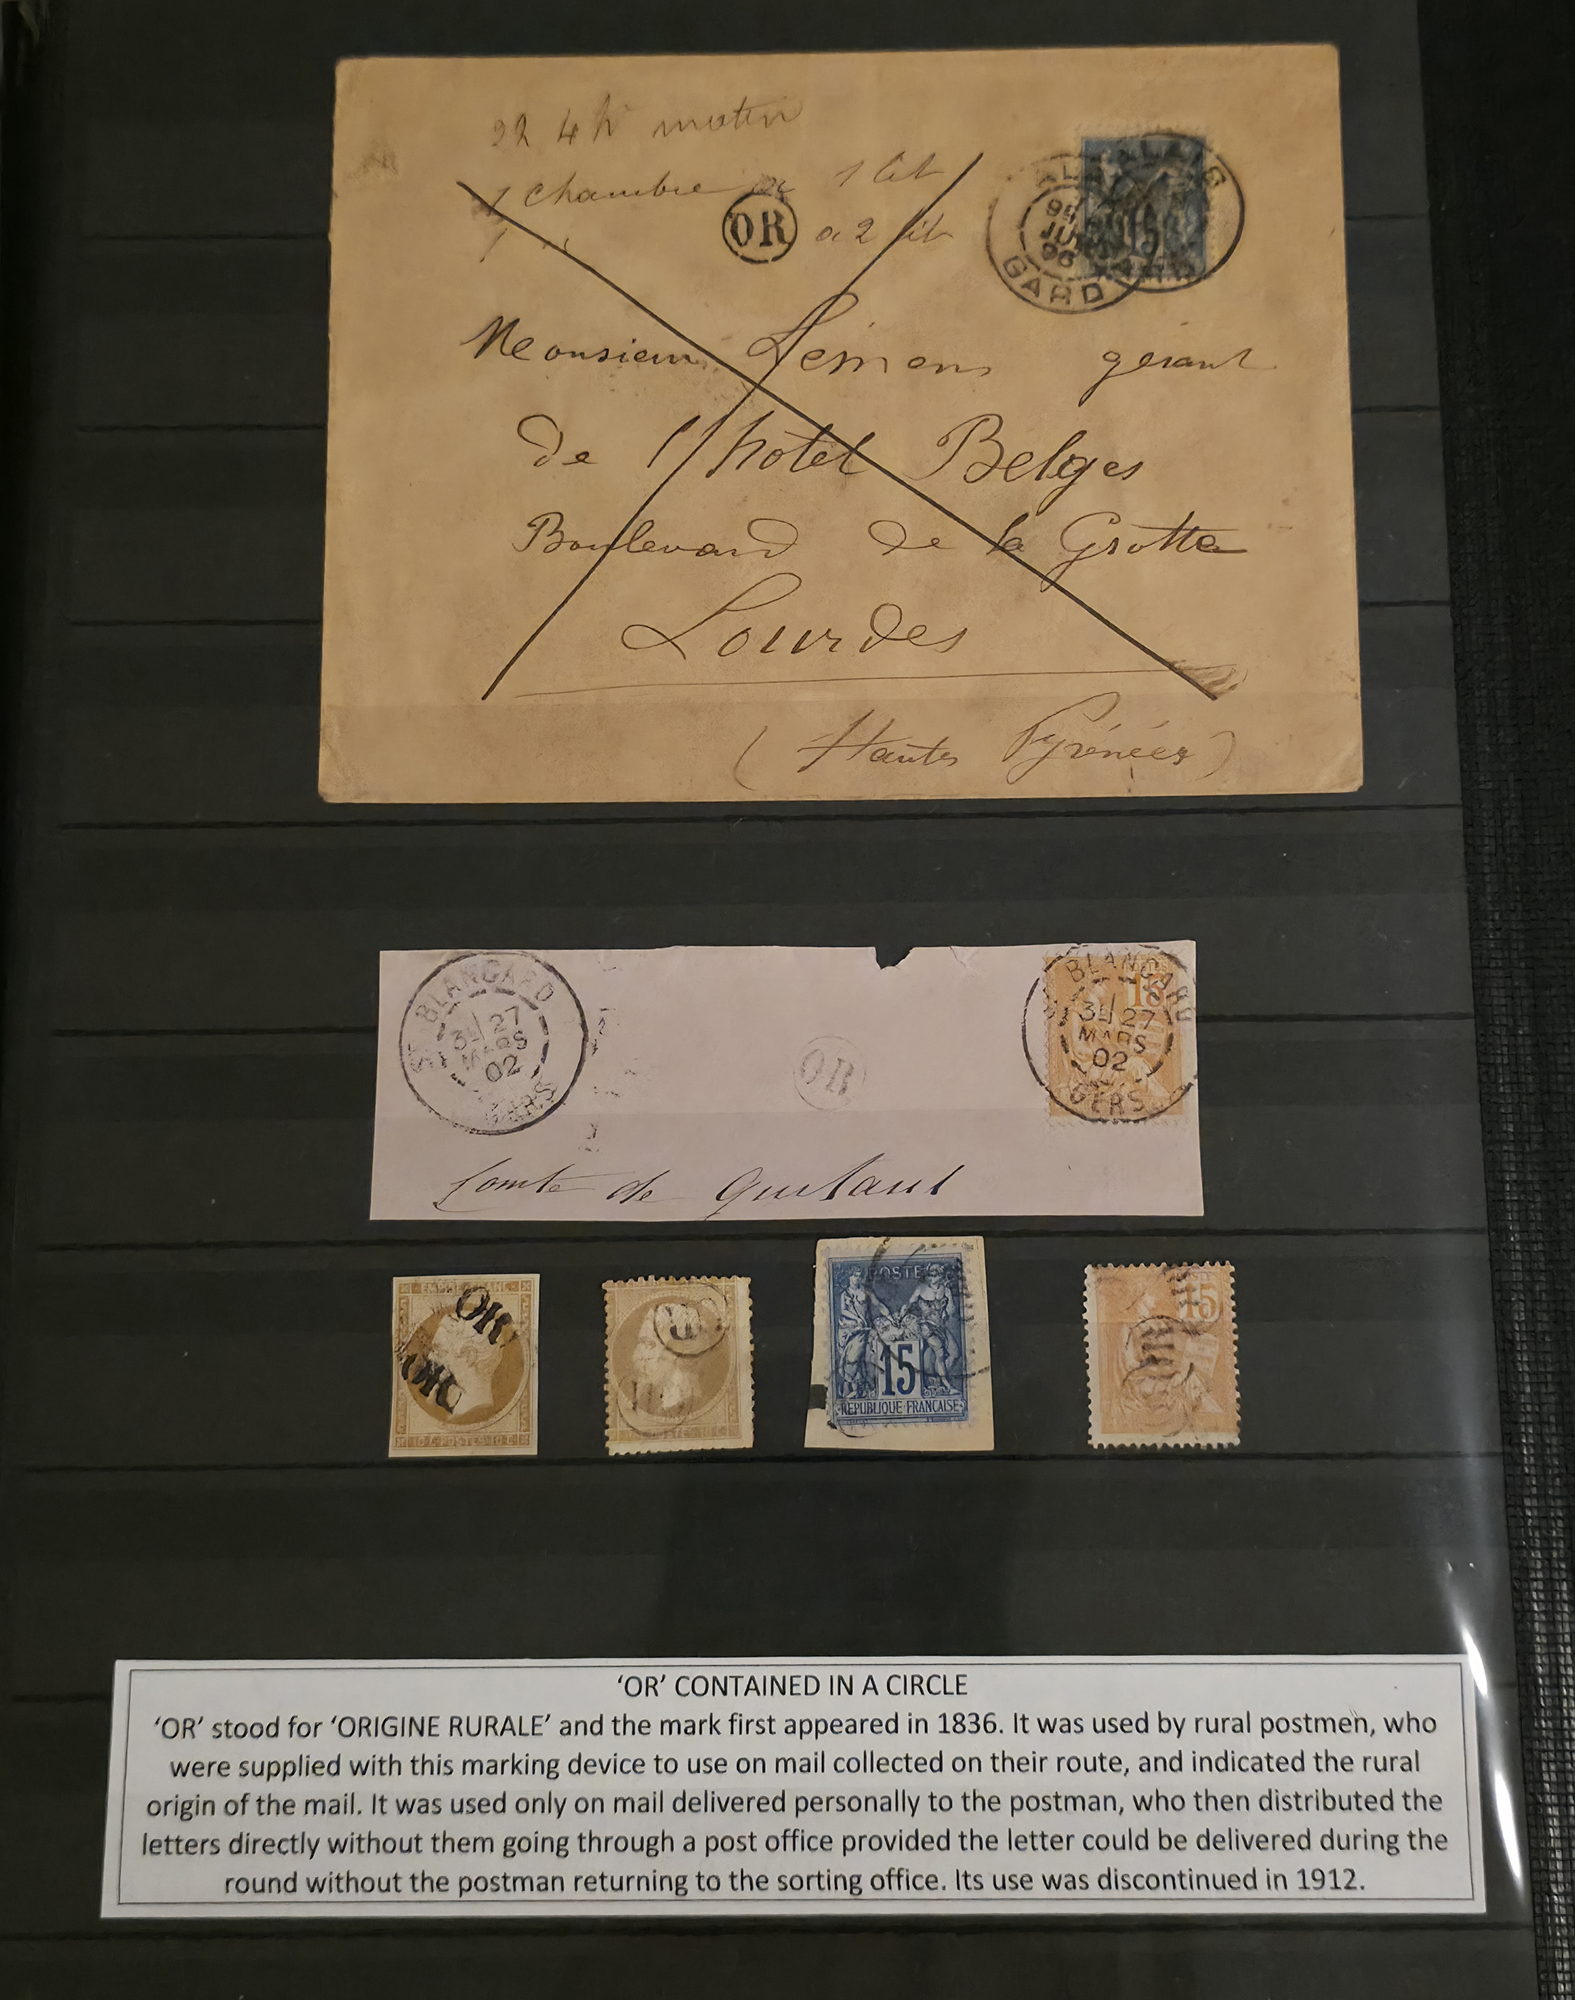 22 4 h matin
1 chambre a 1 lit
1 " a 2 lit
OR
ALAIS
JUIN
96
GARD
15
Monsieur gérant
de l'hôtel Belges
Boulevard de la Grotte
Lourdes
(Hautes Pyrénées)
ST BLANCARD
3E 27
MARS
02
GERS
OR
15
BLANCARD
3E 27
MARS
02
GERS
Comte de
EMPIRE FRANC
OR
OR
10 C POSTES 10 C
OR
OR
POSTES 10 C
POSTE
15
REPUBLIQUE FRANCAISE
15
OR
'OR' CONTAINED IN A CIRCLE
'OR' stood for 'ORIGINE RURALE' and the mark first appeared in 1836. It was used by rural postmen, who
were supplied with this marking device to use on mail collected on their route, and indicated the rural
origin of the mail. It was used only on mail delivered personally to the postman, who then distributed the
letters directly without them going through a post office provided the letter could be delivered during the
round without the postman returning to the sorting office. Its use was discontinued in 1912.